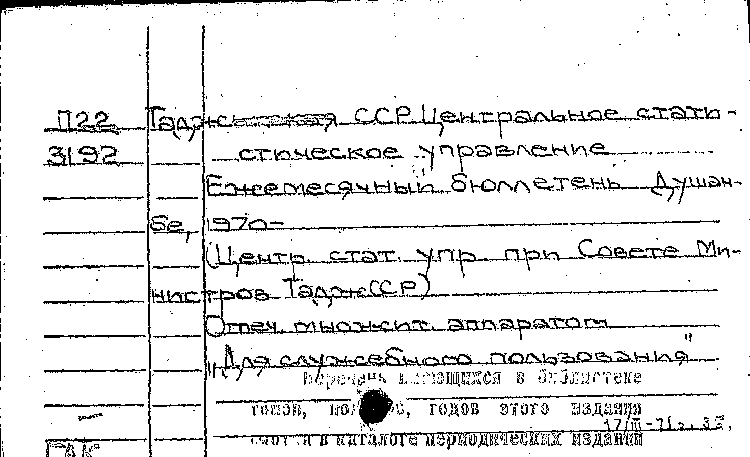 П22 Таджикская ССР. Центральное стати-
3192 стическое управление
Ежемесячный бюллетень. Душан-
бе, 1970-
(Центр. стат. упр. при Совете Ми-
нистров Тадж.ССР)
Отпеч. множит. аппаратом
"Для служебного пользования"
Перечень имеющихся в библиотеке
томов, годов этого издания
смотри в каталоге периодических изданий
17/III-71г.
ГАК